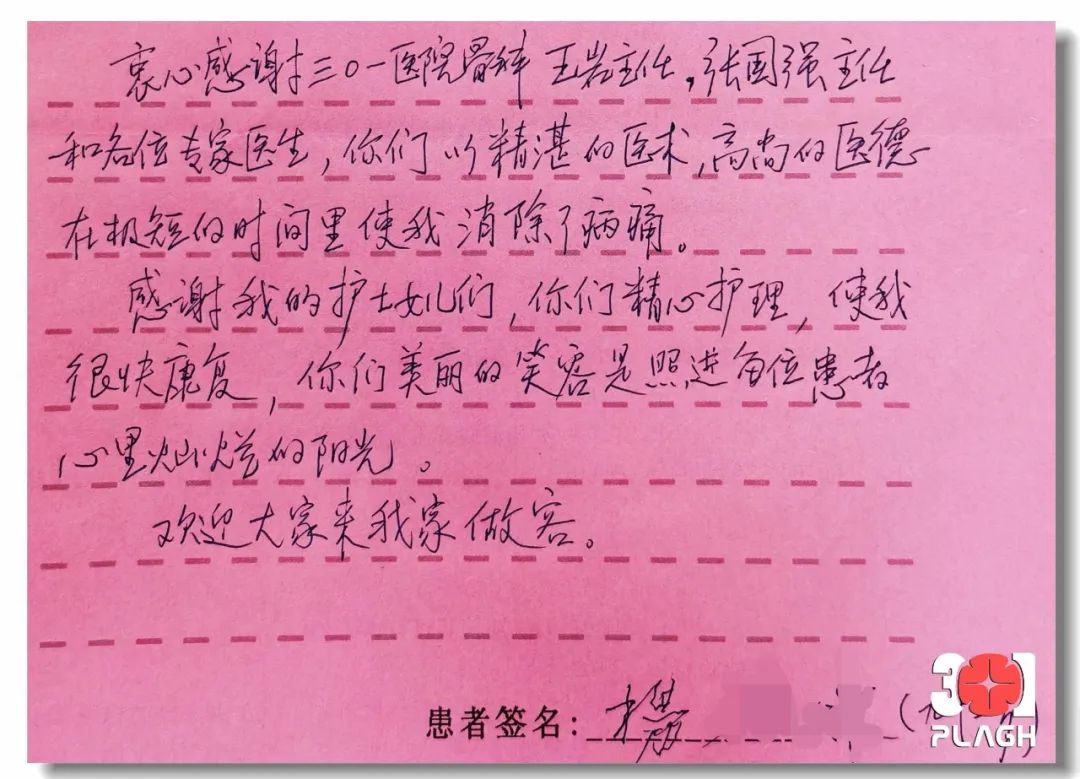 衷心感谢三〇一医院骨科王岩主任,张国强主任
和各位专家医生,你们以精湛的医术,高尚的医德
在极短的时间里使我消除了病痛。
感谢我的护士女儿们,你们精心护理,使我
很快康复,你们美丽的笑容是照进每位患者
心里灿烂的阳光。
欢迎大家来我家做客。
患者签名:
301
PLAGH